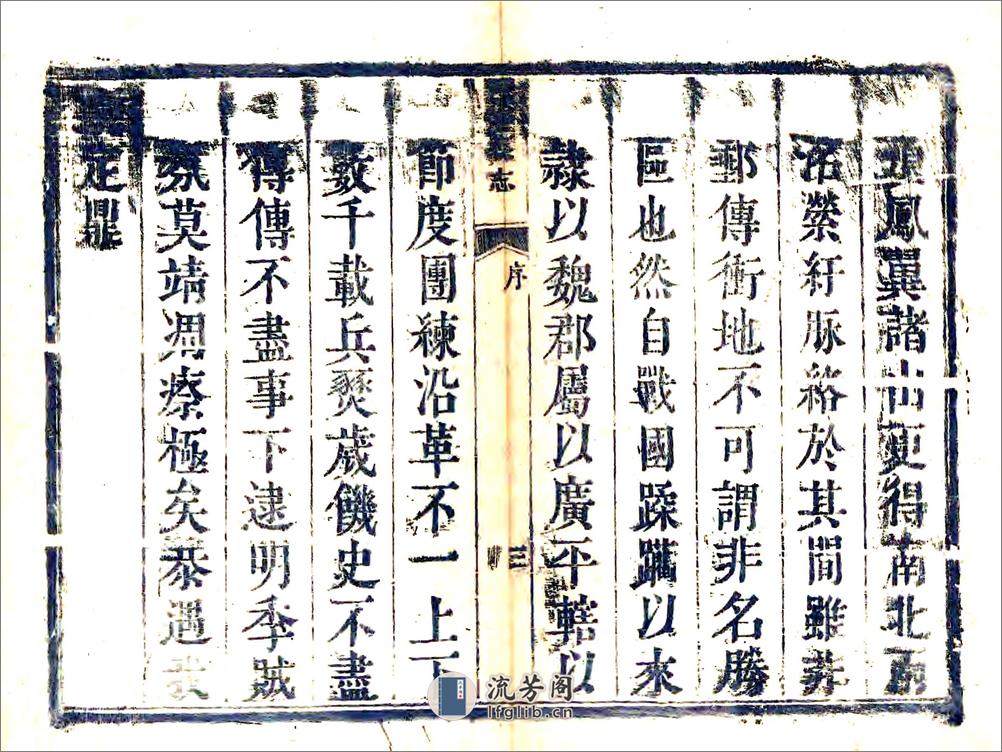 鳳翼諸山更得南北兩
洺縈紆脉絡於其間雖非
郵傳衝地不可謂非名勝
區也然自戰國蹂躪以來
隸以魏郡屬以廣平轄以
志 序 三
節度團練沿革不一上下
數千載兵燹歲饑史不盡
傳傳不盡事下逮明季賊
氛莫靖凋瘵極矣恭遇我
定鼎
流芳阁
lfglib.cn